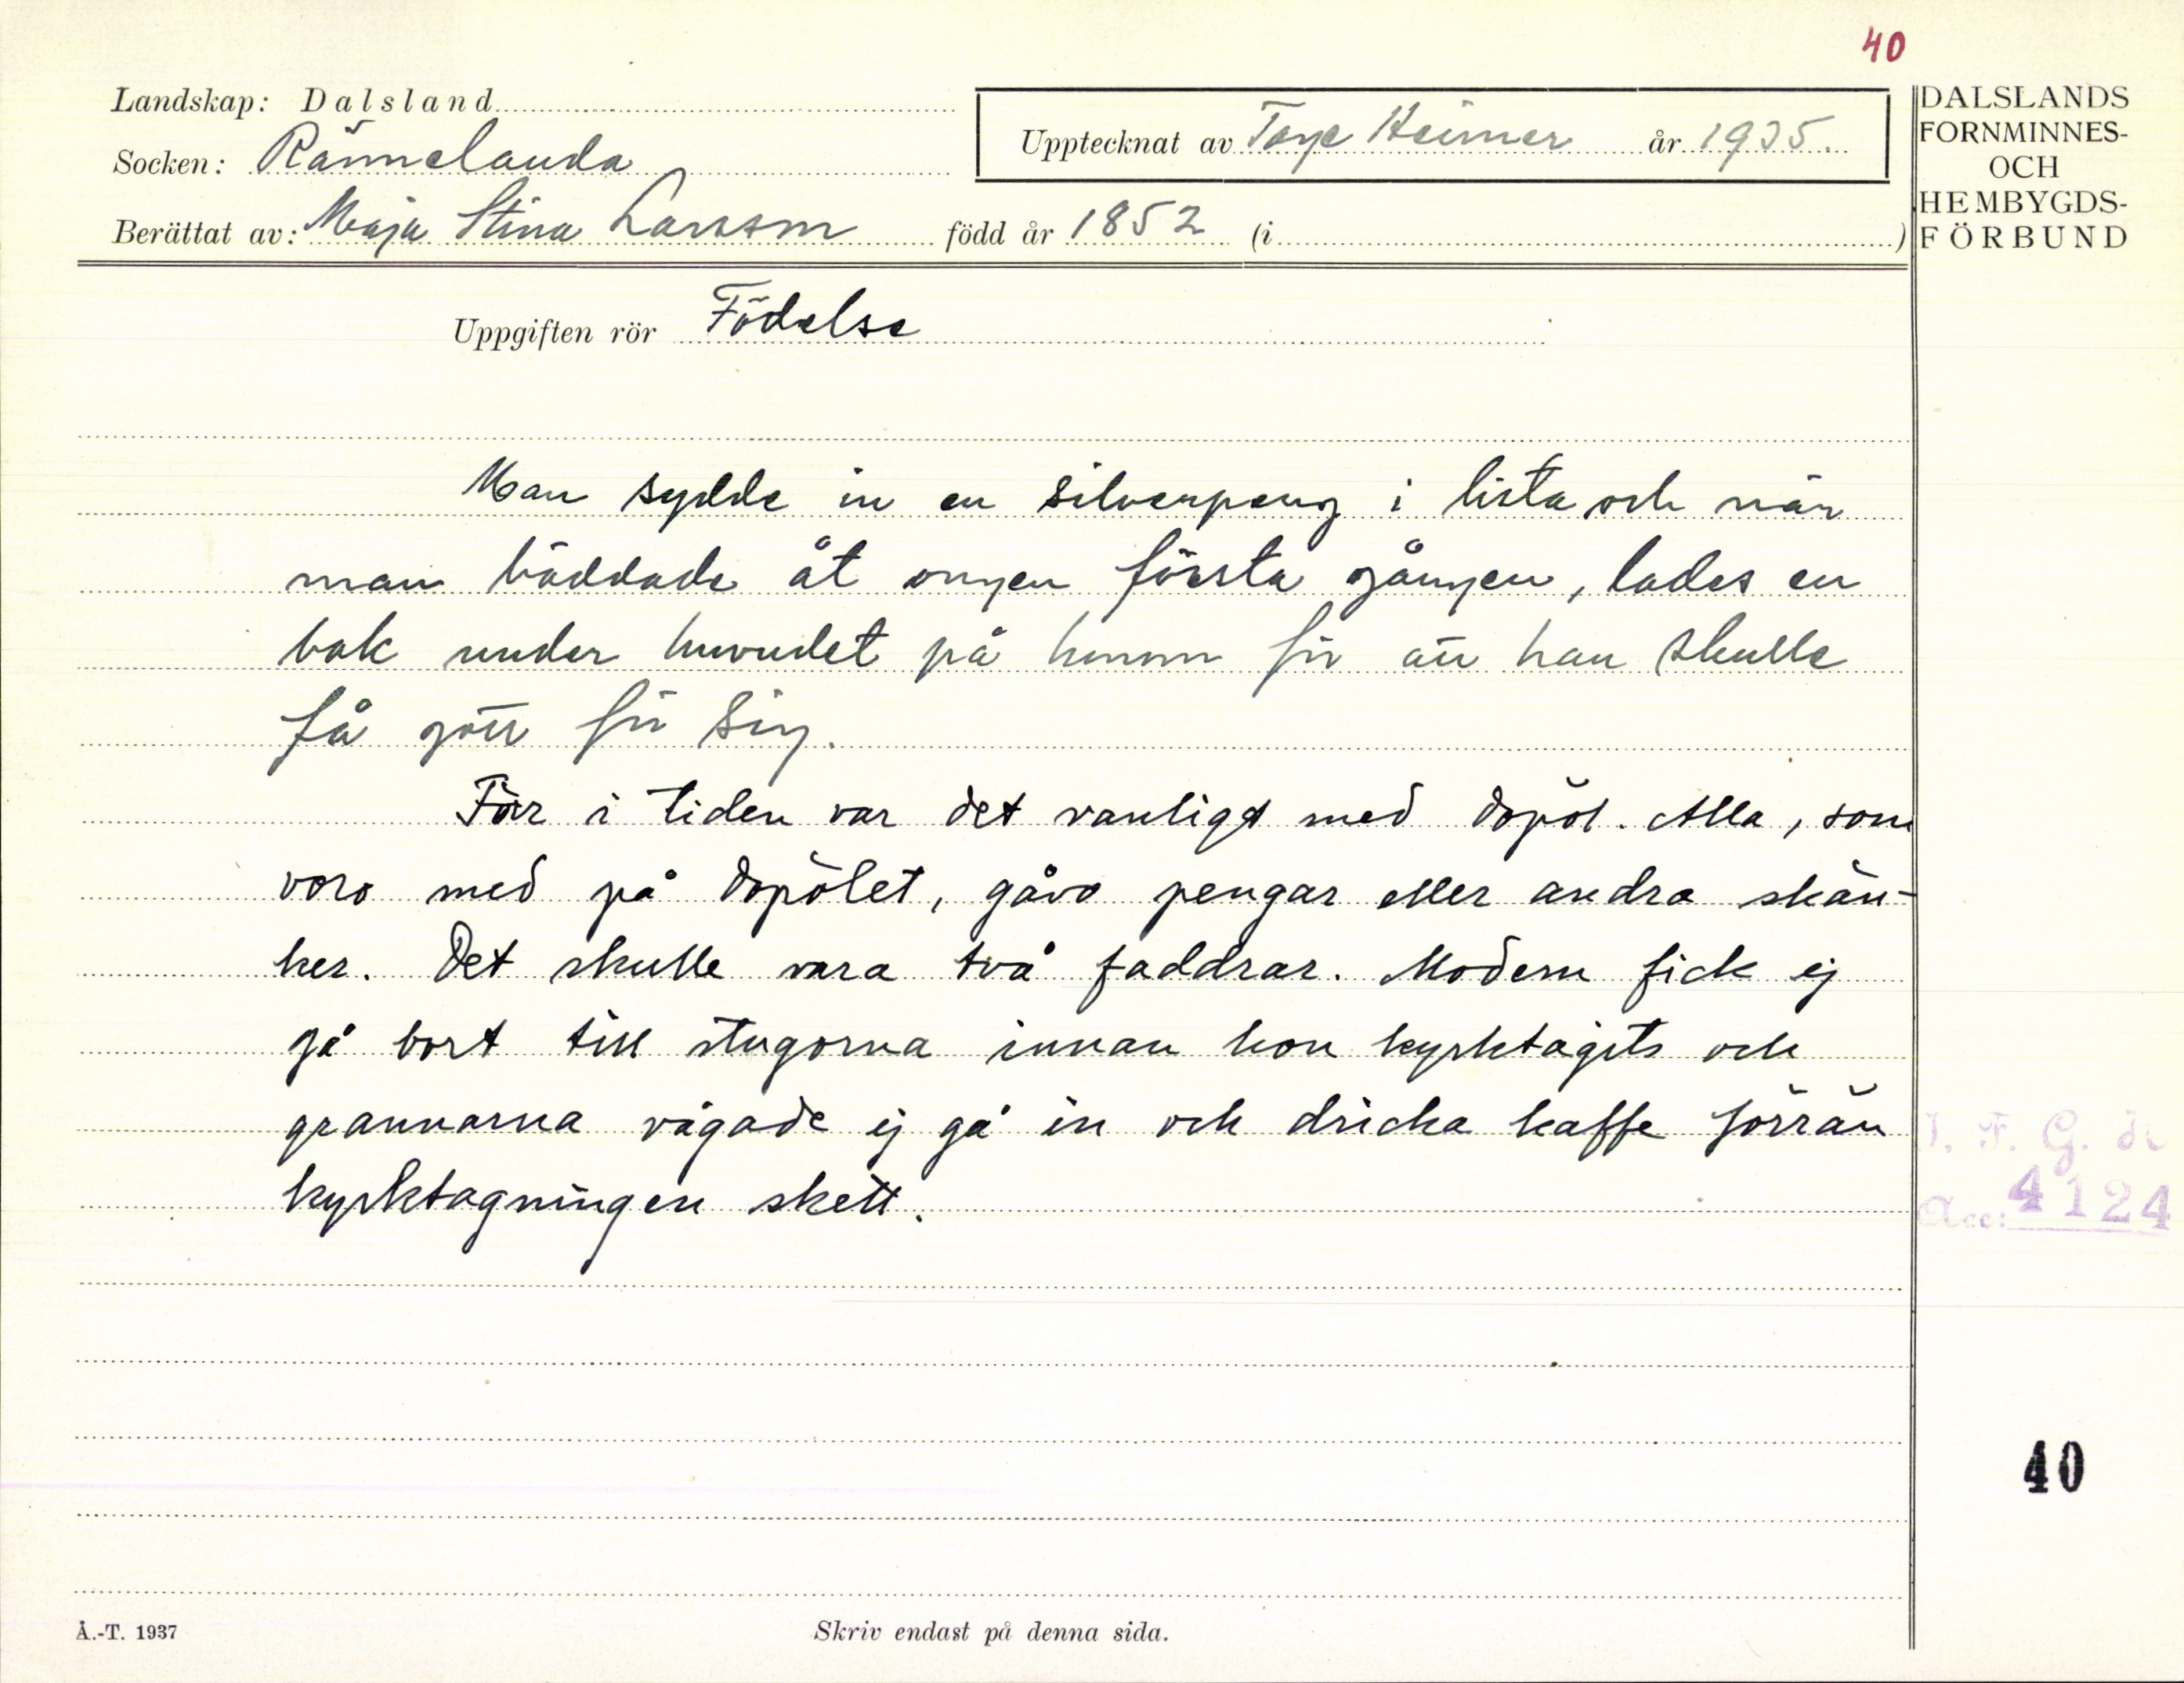 40
Landskap: Dalsland
Upptecknat av Tage Heimer år 1935.
Socken: Rännelanda
Berättat av: Maja Stina Larsson född år 1852 (i )
DALSLANDS
FORNMINNES-
OCH
HEMBYGDS-
FÖRBUND
Uppgiften rör Födelse
Man sydde in en silverpeng i lista och när
man bäddade åt ongen första gången, lades en
bok under huvudet på honom för att han skulle
få gott för sig.
Förr i tiden var det vanligt med dopöl. Alla, som
voro med på dopölet, gåvo pengar eller andra skän-
ker. Det skulle vara två faddrar. Modern fick ej
gå bort till stugorna innan hon kyrktagits och
grannarna vågade ej gå in och dricka kaffe förrän
kyrktagningen skett.
I. F. G. :s
Acc: 4124
40
Å.-T. 1937
Skriv endast på denna sida.